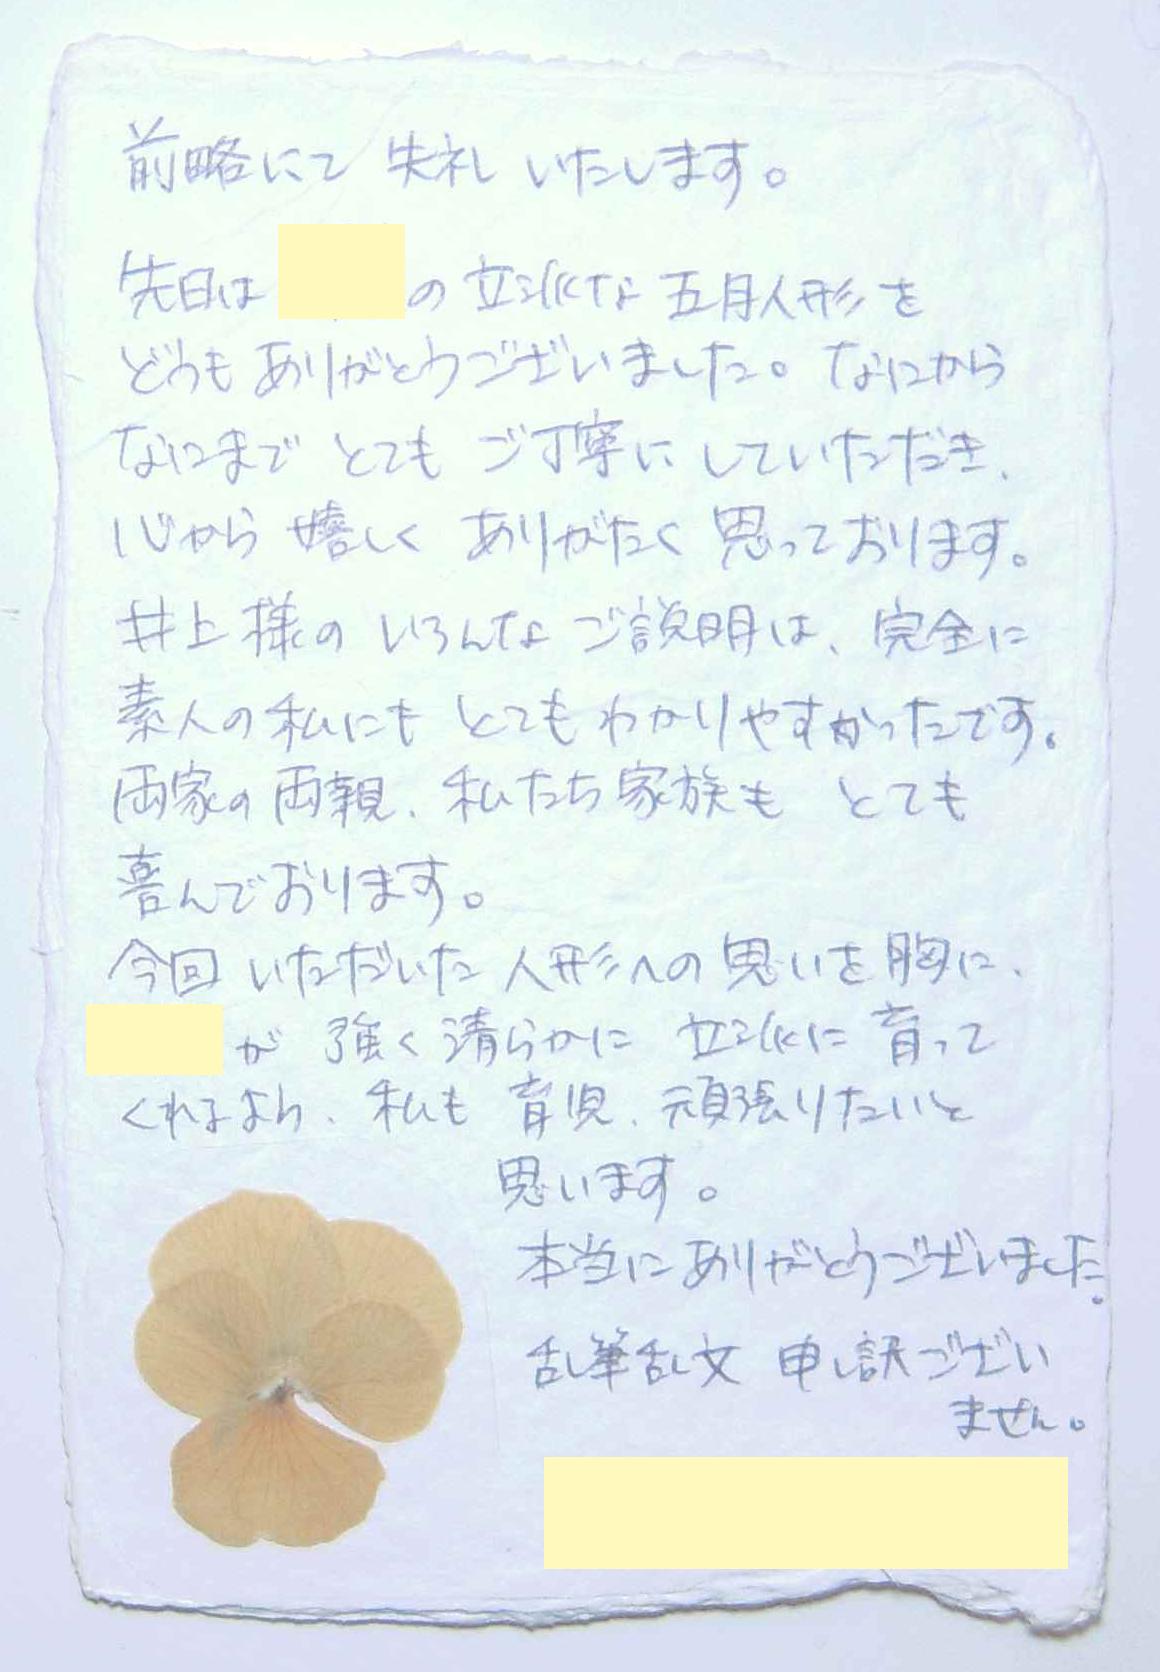 前略にて 失礼いたします。
先日は の 立派な 五月人形を
どうも ありがとうございました。 なにから
なにまで とても ご丁寧に していただき、
心から 嬉しく ありがたく 思っております。
井上様の いろんな ご説明は、完全に
素人の私にも とてもわかりやすかったです。
両家の両親、私たち家族も とても
喜んでおります。
今回 いただいた 人形への 思いを 胸に、
が 強く 清らかに 立派に 育って
くれるよう、私も 育児、頑張りたいと
思います。
本当に ありがとうございました。
乱筆乱文 申し訳ござい
ません。